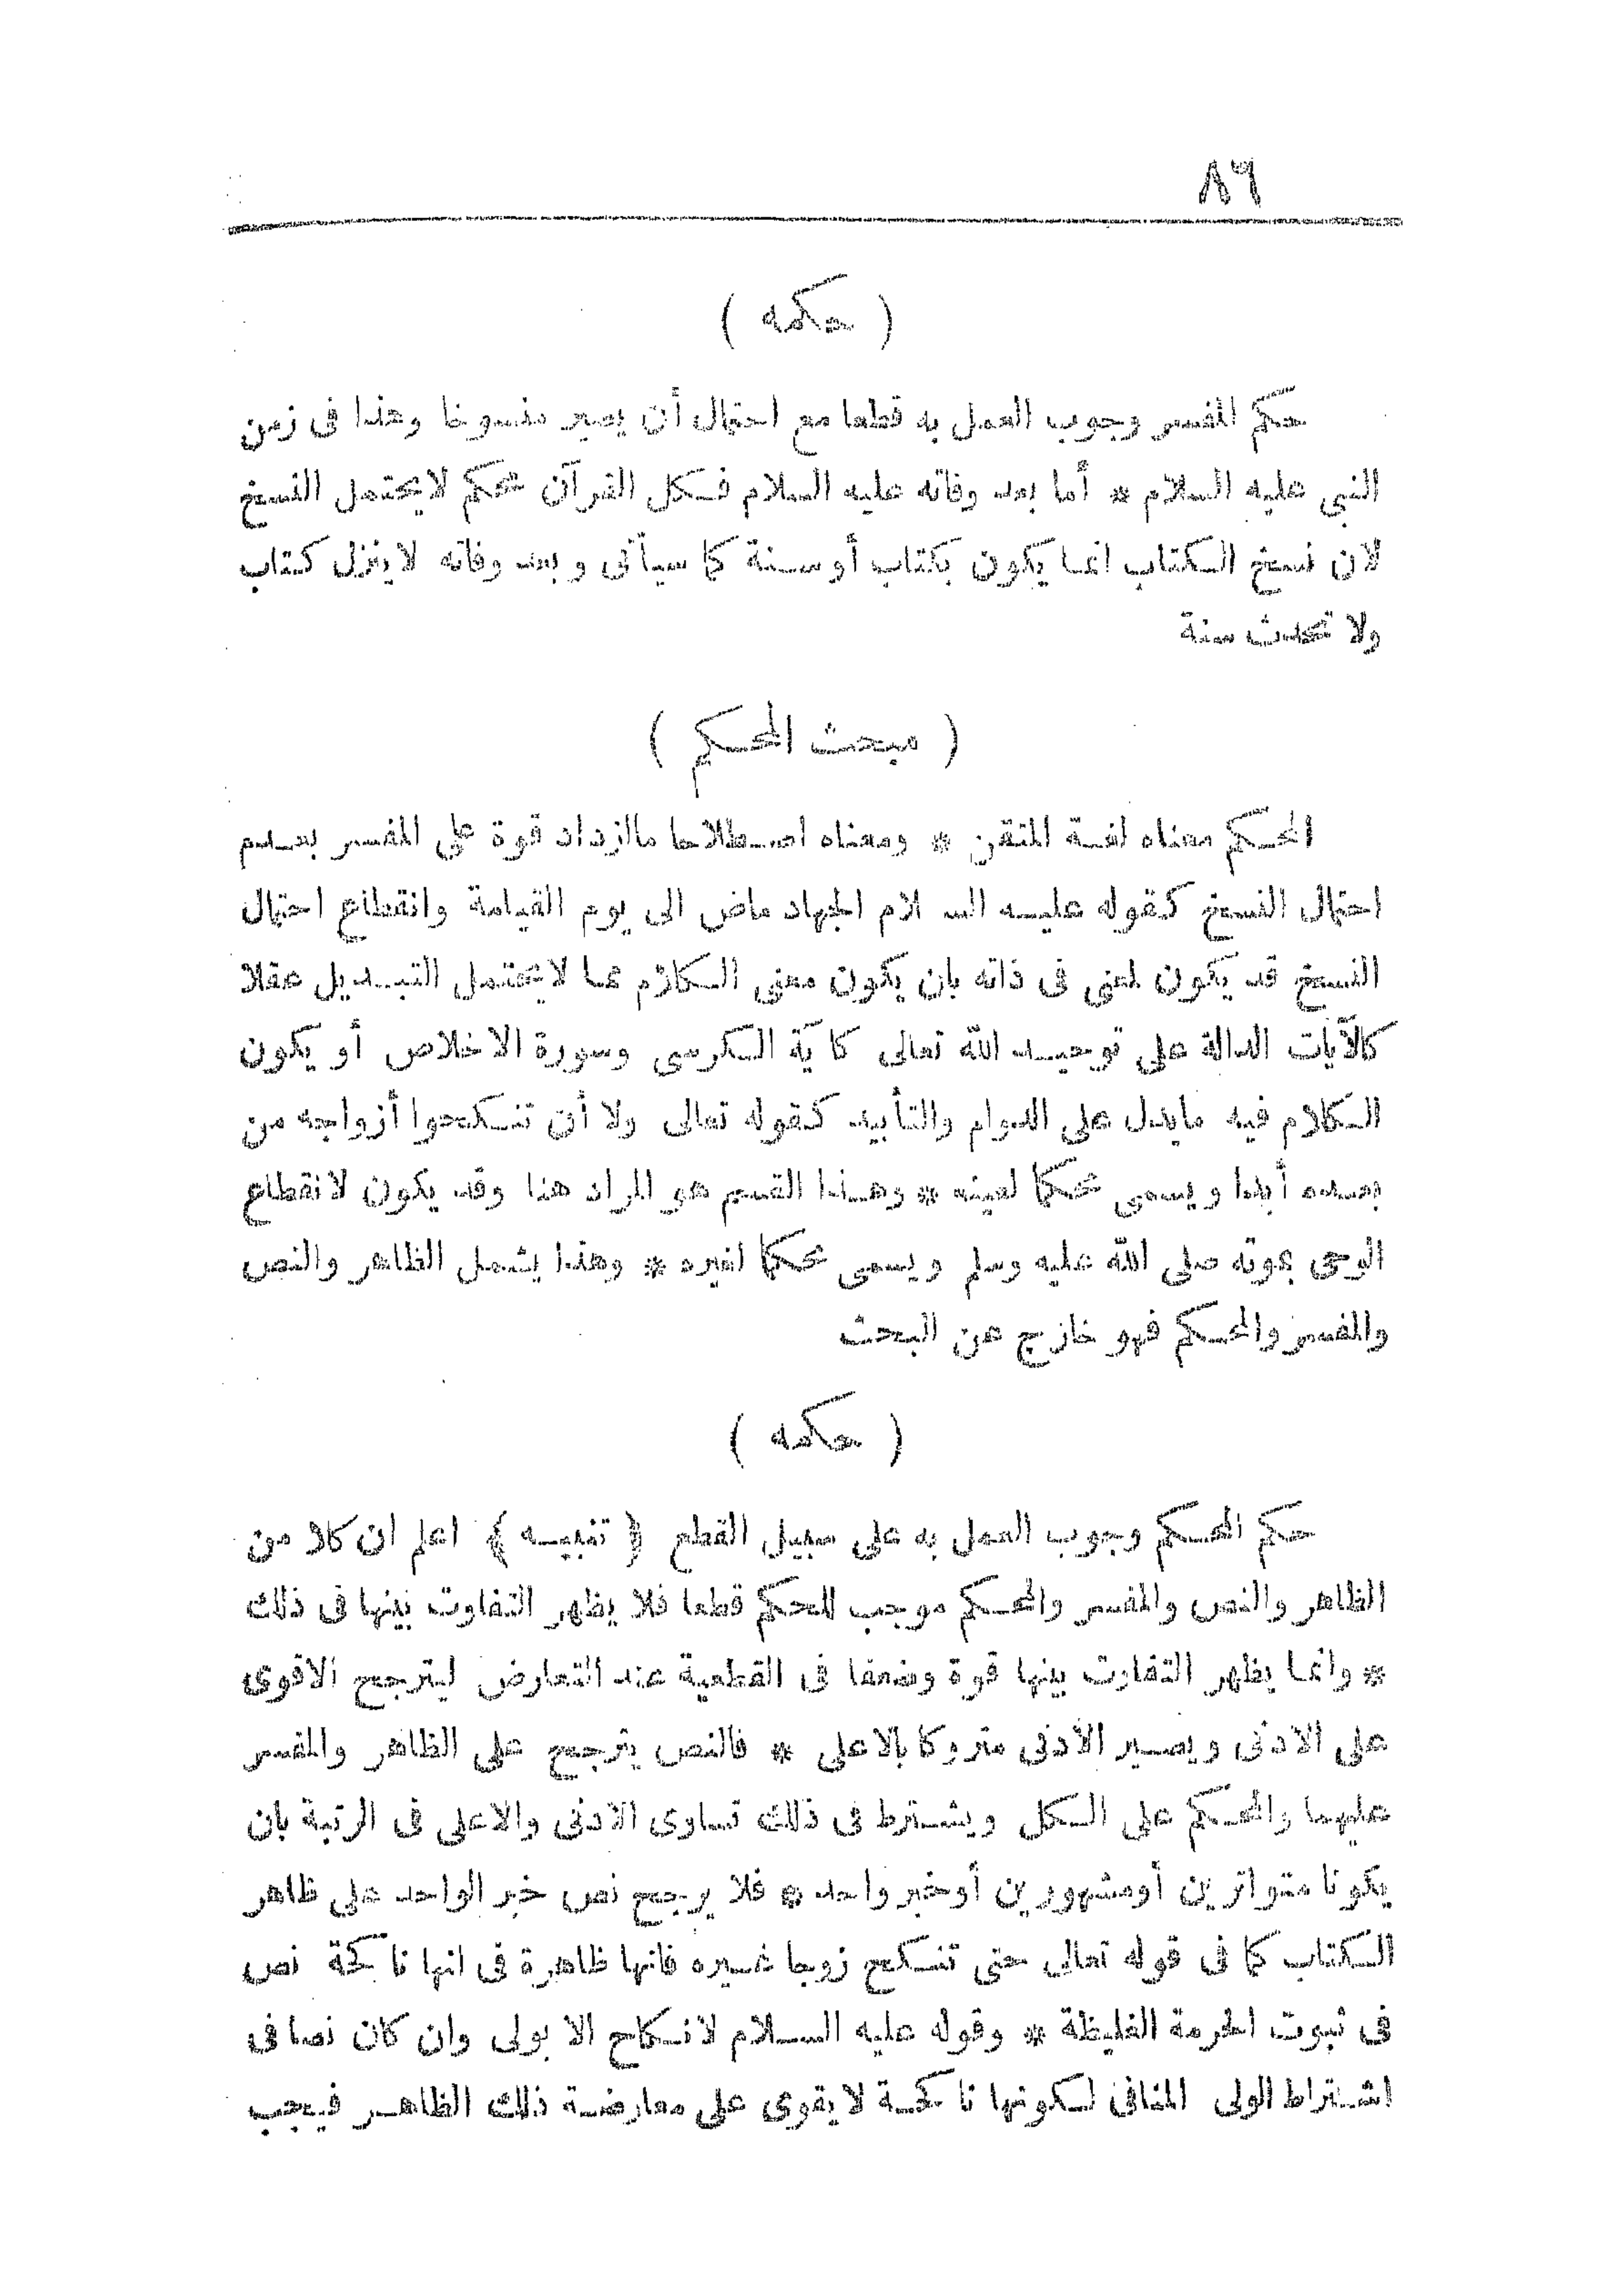 ٨٩
( حكمه )
حكم المفسر وجوب العمل به قطعا مع احتمال أن يصير منسوخا وهذا فى زمن
النبى عليه السلام * أما بعد وفاته عليه السلام فكل القرآن محكم لا يحتمل النسخ
لان نسخ الكتاب انما يكون بكتاب أو سنة كما سيأتى وبعد وفاته لا ينزل كتاب
ولا تحدث سنة
( مبحث المحكم )
المحكم معناه لغة المتقن * ومعناه اصطلاحا ما ازداد قوة على المفسر بعدم
احتمال النسخ كقوله عليه السلام الجهاد ماض الى يوم القيامة وانقطاع احتمال
النسخ قد يكون لمعنى فى ذاته بان يكون معنى الكلام مما لا يحتمل التبديل عقلا
كالآيات الدالة على توحيد الله تعالى كآية الكرسى وسورة الاخلاص أو يكون
الكلام فيه ما يدل على الدوام والتأبيد كقوله تعالى ولا أن تنكحوا أزواجه من
بعده أبدا ويسمى محكما لعينه * وهذا القسم هو المراد هنا وقد يكون لانقطاع
الوحى بموته صلى الله عليه وسلم ويسمى محكما لغيره * وهذا يشمل الظاهر والنص
والمفسر والمحكم فهو خارج عن البحث
( حكمه )
حكم المحكم وجوب العمل به على سبيل القطع ﴿ تنبيه ﴾ اعلم ان كلا من
الظاهر والنص والمفسر والمحكم موجب للحكم قطعا فلا يظهر التفاوت بينها فى ذلك
* وانما يظهر التفاوت بينها قوة وضعفا فى القطعية عند التعارض ليترجح الاقوى
على الادنى ويصير الأدنى متروكا بالاعلى * فالنص يترجح على الظاهر والمفسر
عليهما والمحكم على الكل ويشترط فى ذلك تساوى الادنى والاعلى فى الرتبة بان
يكونا متواترين أو مشهورين أو خبر واحد * فلا يرجح نص خبر الواحد على ظاهر
الكتاب كما فى قوله تعالى حتى تنكح زوجا غيره فانها ظاهرة فى انها ناكحة نص
فى ثبوت الحرمة الغليظة * وقوله عليه السلام لا نكاح الا بولى وان كان نصا فى
اشتراط الولى المنافى لكونها ناكحة لا يقوى على معارضة ذلك الظاهر فيجب